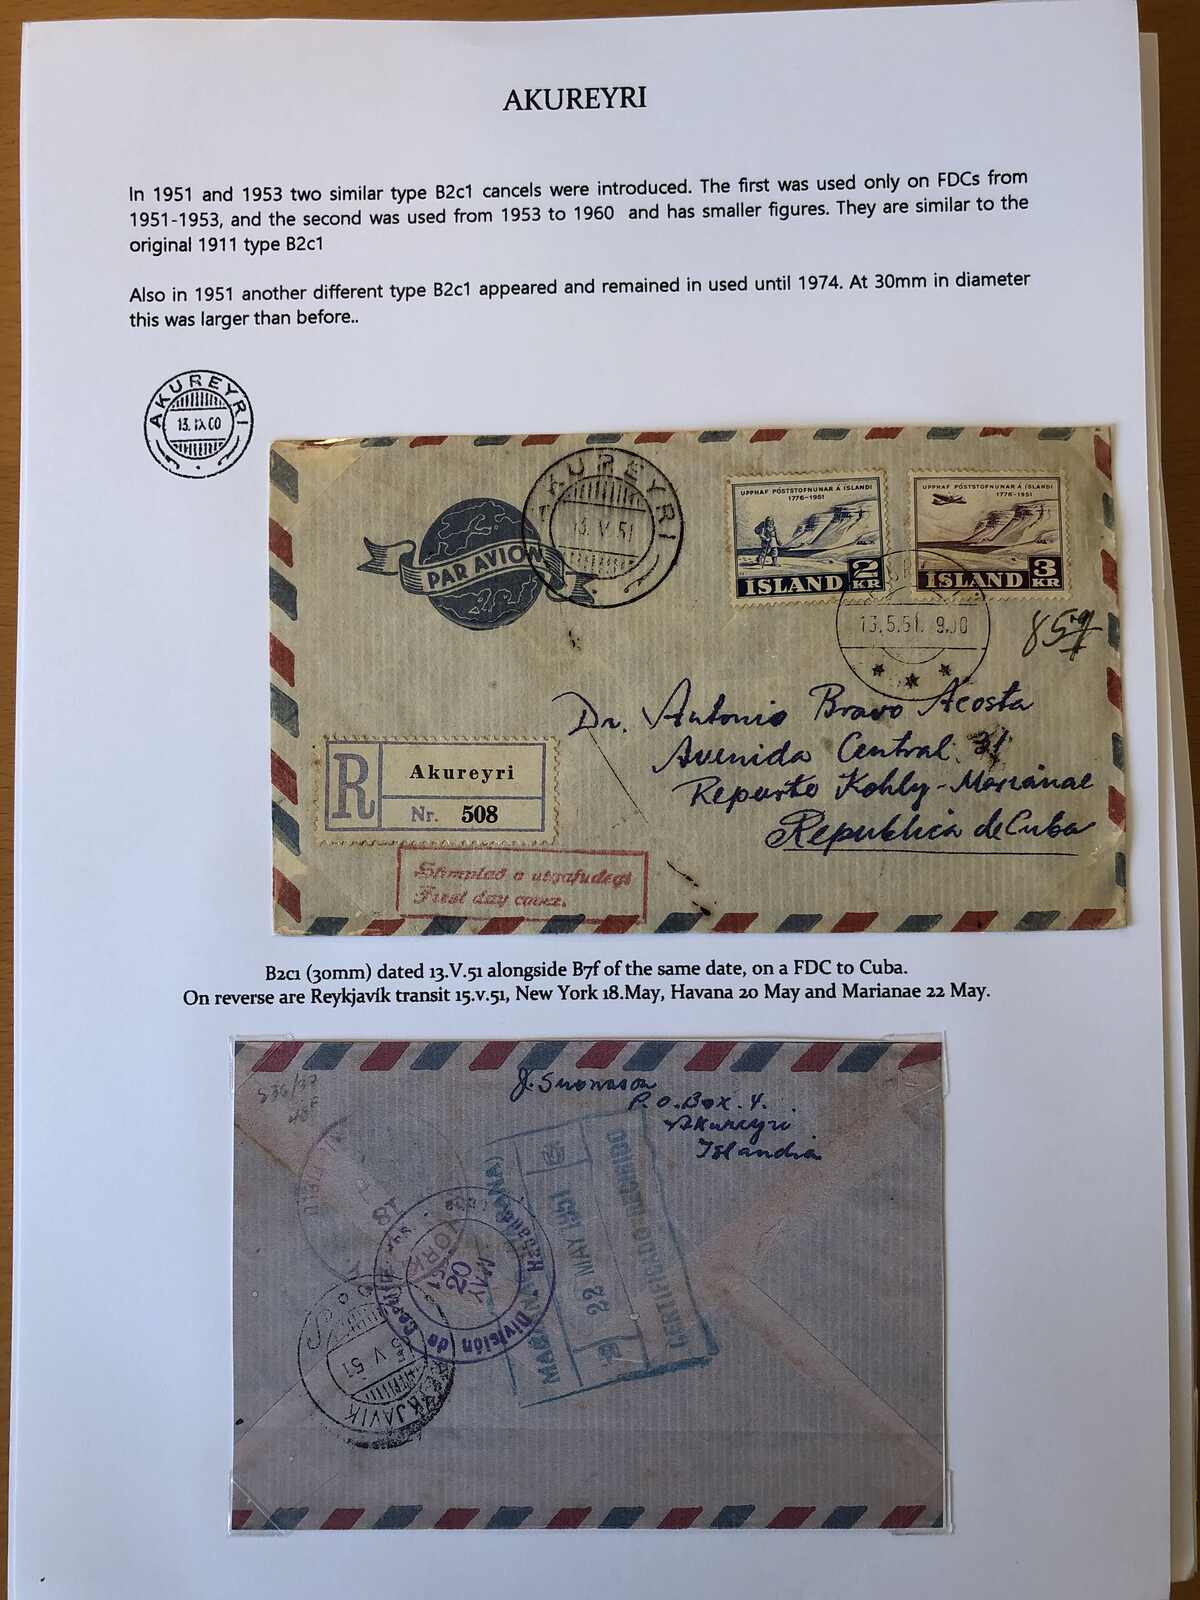 AKUREYRI
In 1951 and 1953 two similar type B2c1 cancels were introduced. The first was used only on FDCs from
1951-1953, and the second was used from 1953 to 1960 and has smaller figures. They are similar to the
original 1911 type B2c1
Also in 1951 another different type B2c1 appeared and remained in used until 1974. At 30mm in diameter
this was larger than before..
AKUREYRI
13. IX 60
AKUREYRI
13. V. 51
PAR AVION
UPPHAF PÓSTSTOFNUNAR Á ÍSLANDI
1776-1951
ISLAND 2 KR
UPPHAF PÓSTSTOFNUNAR Á ÍSLANDI
1776-1951
ISLAND 3 KR
13.5.51. 9.00
Dr. Antonio Bravo Acosta
Avenida Central 31
Reparto Kohly - Marianae
Republica de Cuba
R Akureyri
Nr. 508
Stimplað á útgáfudegi
First day cover.
B2c1 (30mm) dated 13.V.51 alongside B7f of the same date, on a FDC to Cuba.
On reverse are Reykjavík transit 15.v.51, New York 18.May, Havana 20 May and Marianae 22 May.
J. Svonason
P.O. Box. 4.
Akureyri
Islandia
22 MAY 1951
CERTIFICADO RECIBIDO
YORK
20
MAY
1951
División de
Habana
V 51
REYKJAVIK